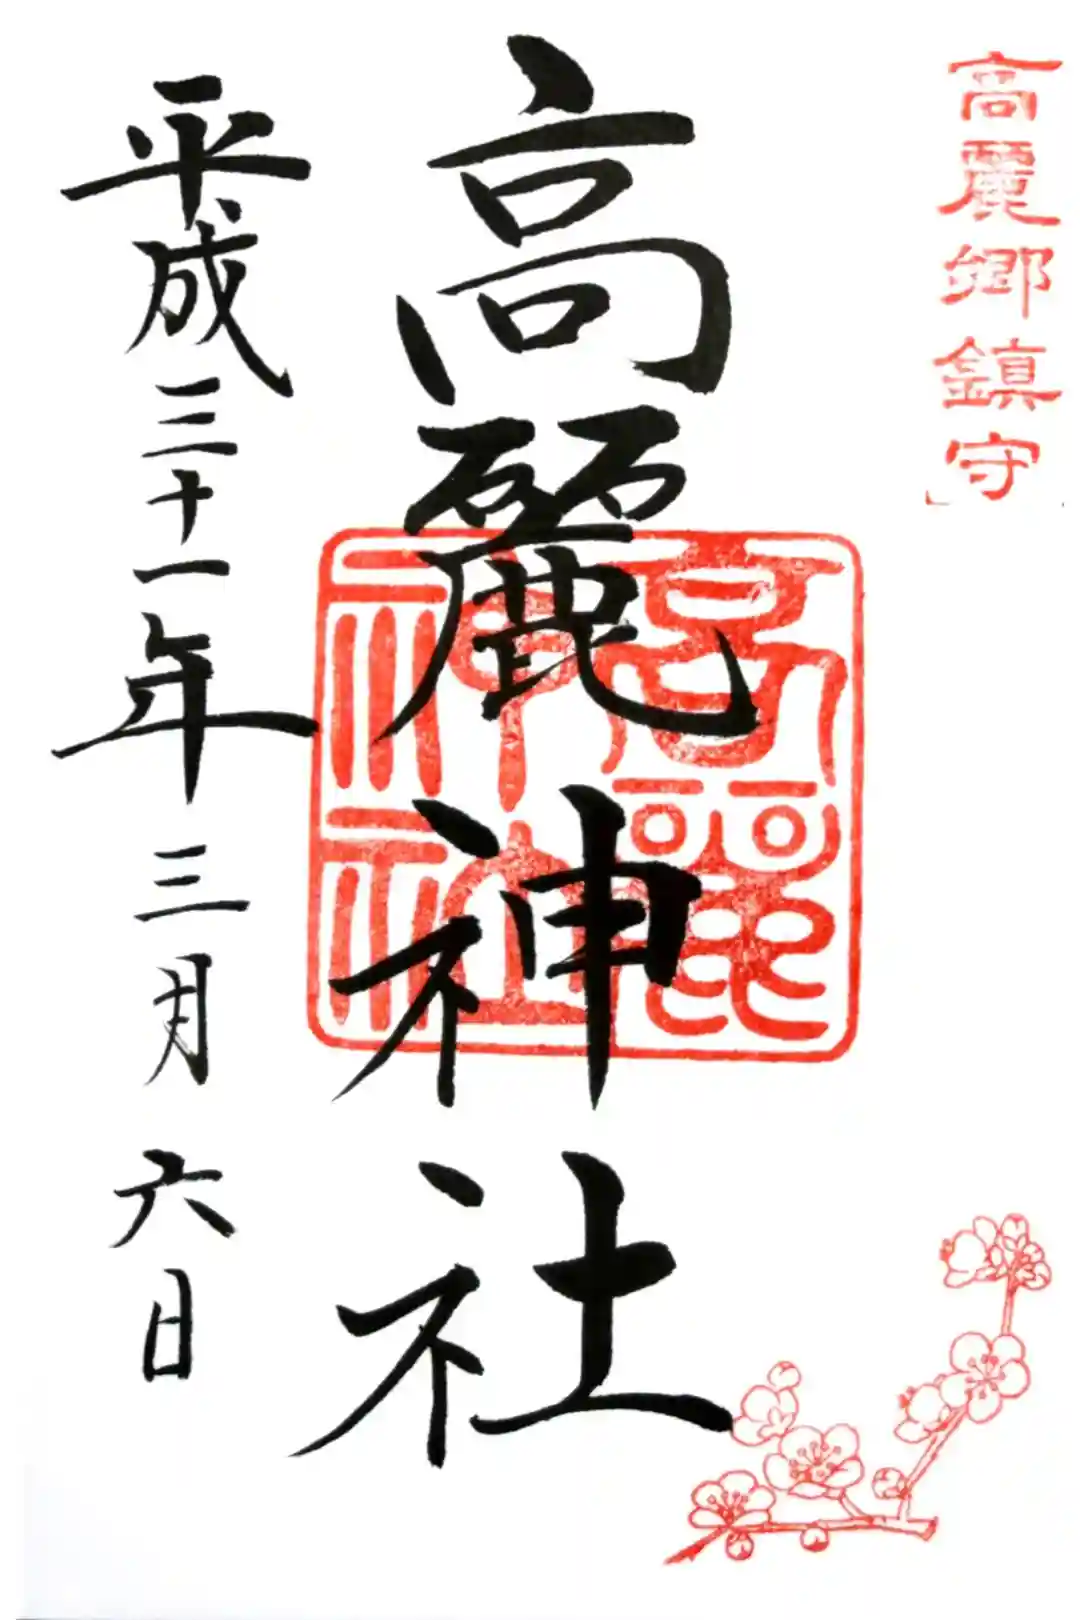 高麗郷鎮守
高麗神社
高麗神社
平成三十一年三月六日